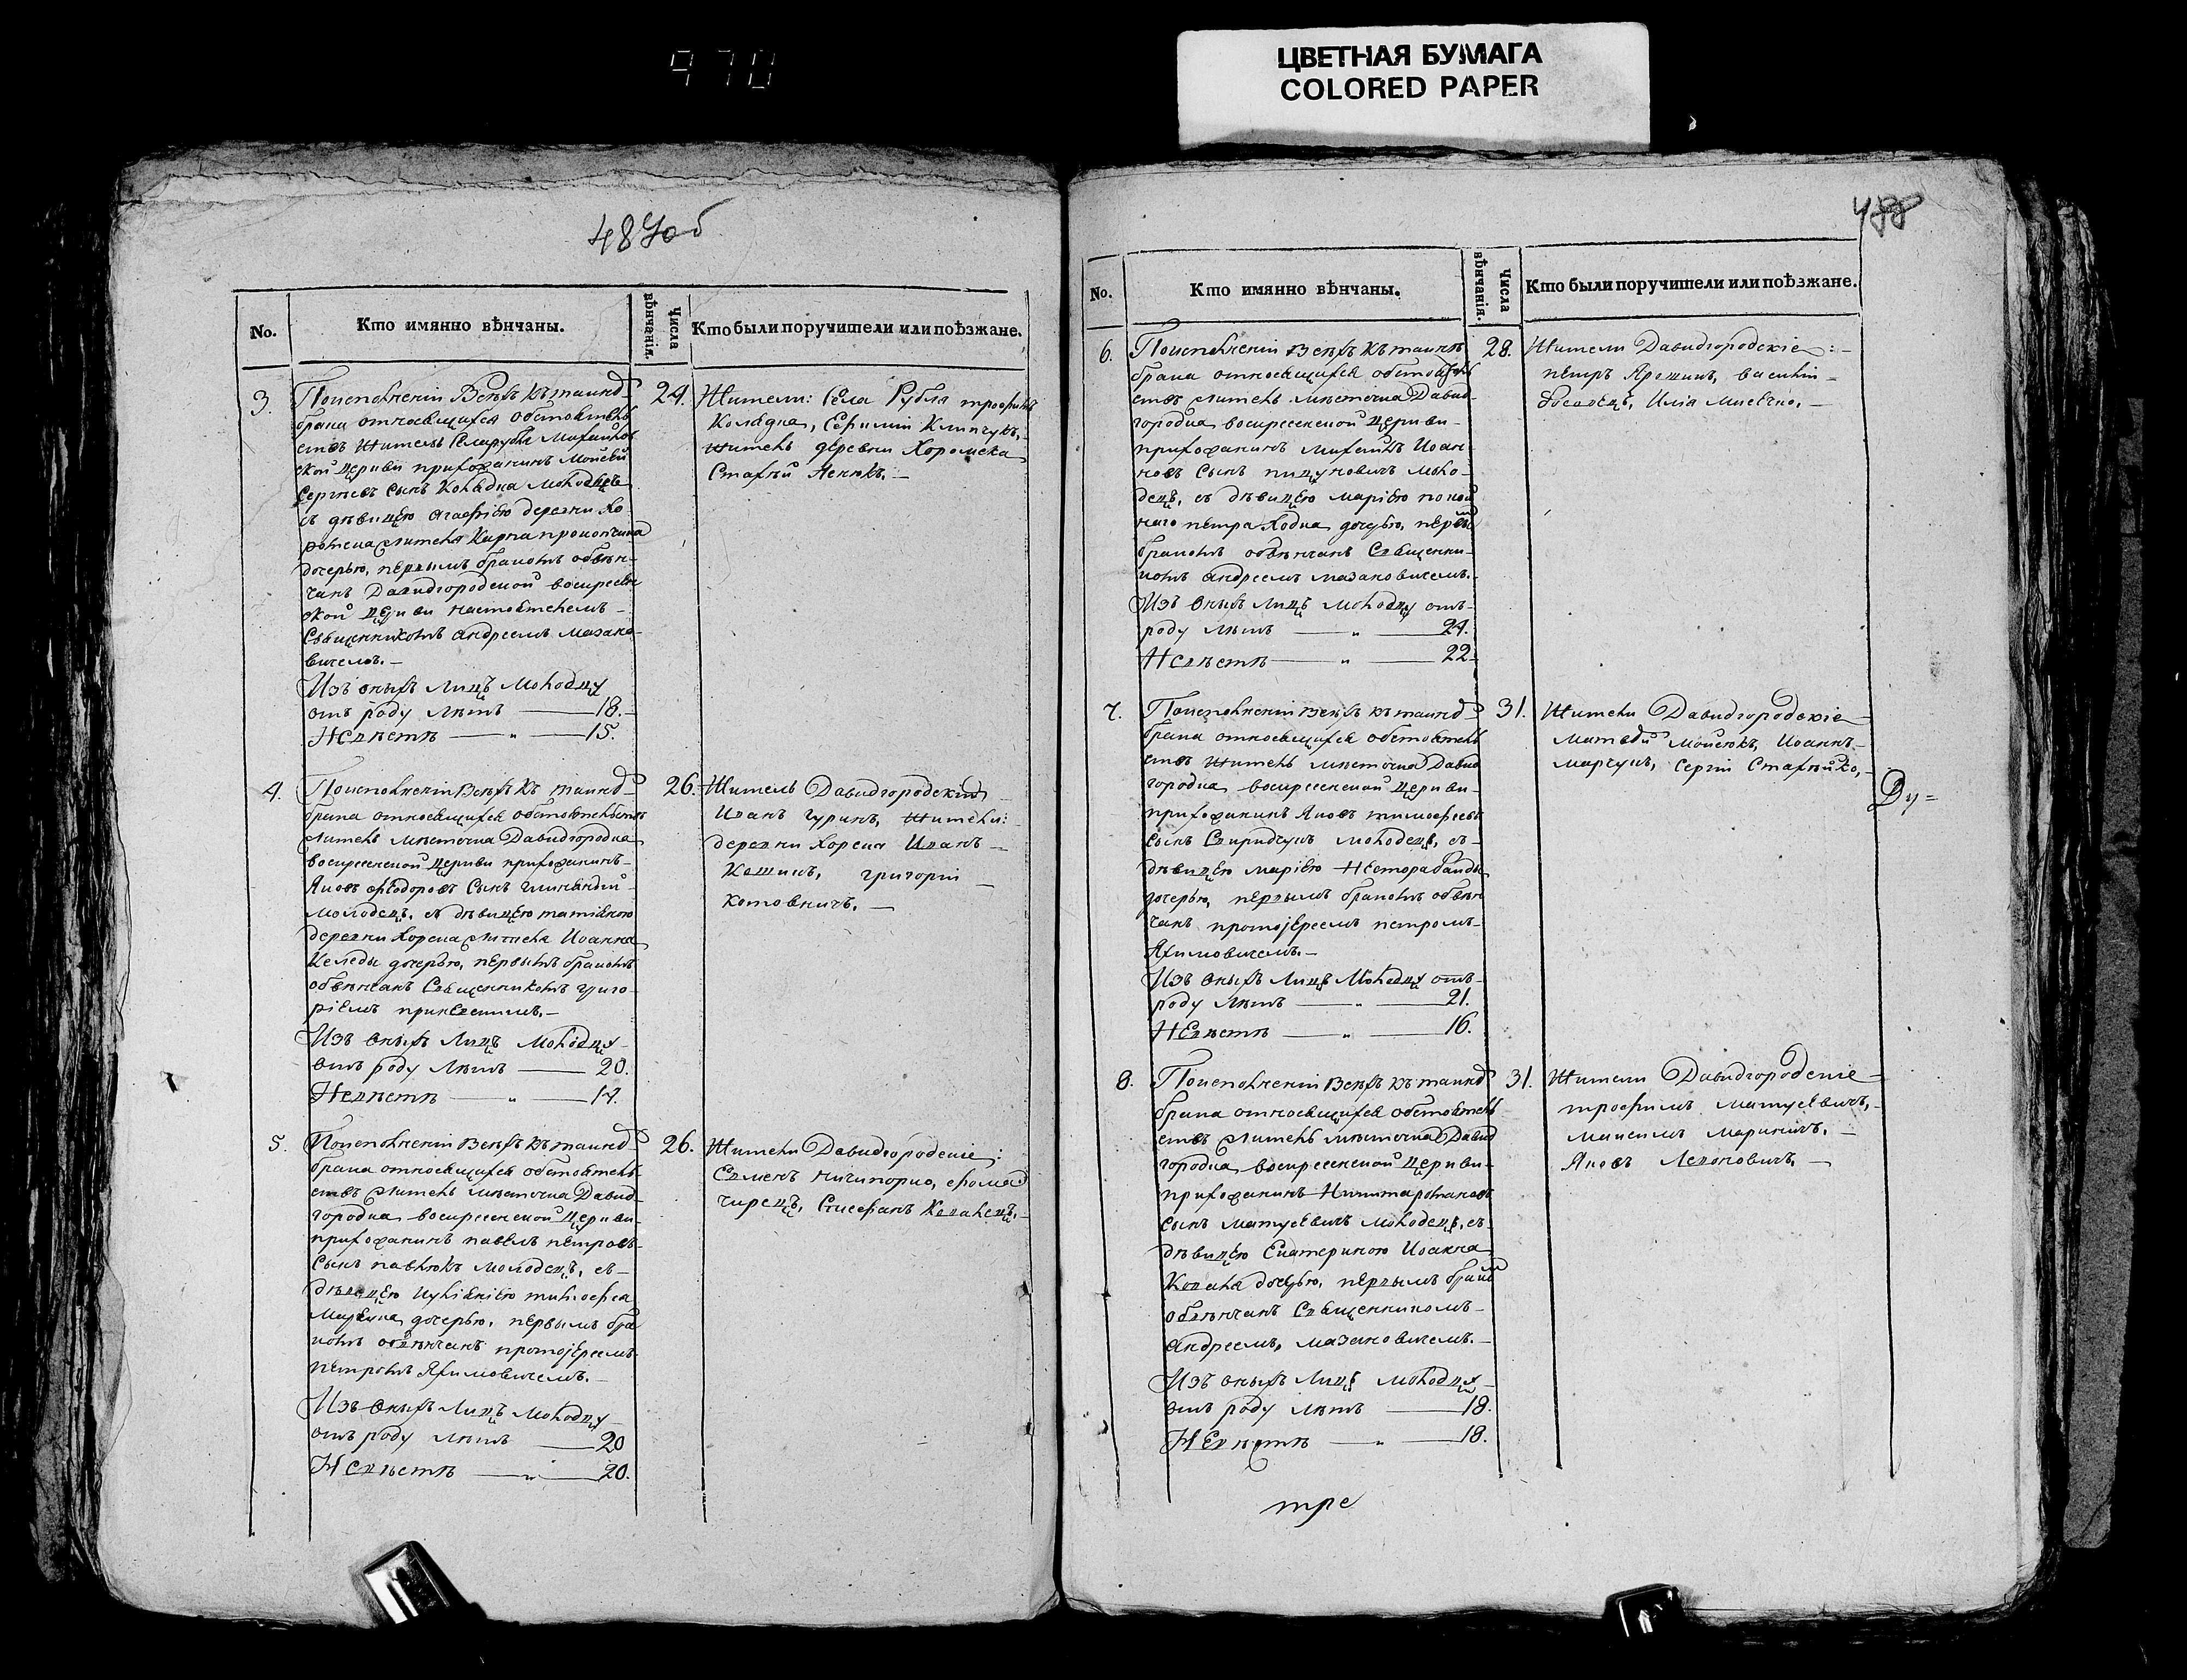 970
ЦВЕТНАЯ БУМАГА
COLORED PAPER
487об
No.
Кто имянно вѣнчаны.
Числа вѣнчанія.
Кто были поручители или поѣзжане.
3.
По исполненіи Всѣхъ къ таинст
брака относящихся обстоятель
ствъ житель Села Рубля Михайлов
ской Церкви прихожанинъ Моисей
Сергѣевъ Сынъ Колядка Молодецъ
съ дѣвицею Агафіею деревни Хо
ромска жителя Карпа
дочерью, первымъ бракомъ обвѣн-
чанъ Давидгородской воскресен
ской Церкви настоятелемъ
Священникомъ Андреемъ Мазано-
вичемъ.
Изъ оныхъ Лицъ Молодцу
отъ роду лѣтъ — 18.
Невѣстѣ — „ — 15.
24.
Жители: Села Рубля трофимъ
Колядка, Климчукъ,
житель деревни Хоромска
4.
По исполненіи Всѣхъ къ таинст
брака относящихся обстоятельствъ
житель мѣстечка Давидгородка
воскресенской Церкви прихожанинъ
Яковъ Феодоровъ Сынъ
молодецъ, съ дѣвицею татіаною
деревни Хорска жителя Иоанна
дочерью, первымъ бракомъ
обвѣнчанъ Священникомъ григо-
ріемъ
Изъ оныхъ Лицъ Молодцу
отъ роду лѣтъ — 20.
Невѣстѣ — „ — 17.
26.
Житель Давидгородскій
Иванъ гуринъ, Жители:
деревни Хорска Иванъ
григорій
котовичъ.
5.
По исполненіи Всѣхъ къ таинст
брака относящихся обстоятель
ствъ житель мѣстечка Давид
городка воскресенской Церкви
прихожанинъ павелъ петровъ
Сынъ павлюкъ молодецъ, съ
дѣвицею Иуліаніею тимофея
дочерью, первымъ бра
комъ обвѣнчанъ протоіереемъ
петромъ Якимовичемъ.
Изъ оныхъ Лицъ Молодцу
отъ роду лѣтъ — 20
Невѣстѣ — „ — 20.
26.
Жители Давидгородскіе:
Семенъ ничипорко, фома
чирецъ, Стефанъ
488
No.
Кто имянно вѣнчаны.
Числа вѣнчанія.
Кто были поручители или поѣзжане.
6.
По исполненіи Всѣхъ къ таинст
брака относящихся обстоятель
ствъ житель мѣстечка Давид
городка воскресенской Церкви
прихожанинъ Михаилъ Иоан
новъ Сынъ пицуковичъ моло
децъ, съ дѣвицею Маріею покой
наго петра Ходка дочерью, первы
бракомъ обвѣнчанъ Священни
комъ андреемъ мазановичемъ.
Изъ оныхъ Лицъ Молодцу отъ
роду лѣтъ — „ — 24.
Невѣстѣ — „ — 22.
28.
Жители Давидгородскіе:
петръ Ярошикъ, василій
Илія
7.
По исполненіи Всѣхъ къ таинст
брака относящихся обстоятель
ствъ житель мѣстечка Давид
городка воскресенской Церкви
прихожанинъ Яковъ тимофеевъ
Сынъ Спиридчукъ молодецъ, съ
дѣвицею Маріею Нестора
дочерью, первымъ бракомъ обвѣн
чанъ протоіереемъ петромъ
Якимовичемъ.
Изъ оныхъ Лицъ Молодцу отъ
роду лѣтъ — „ — 21.
Невѣстѣ — „ — 16.
31.
Жители Давидгородскіе
Матвей Иоаннъ
марчукъ, Сергій
Ду=
8.
По исполненіи Всѣхъ къ таинст
брака относящихся обстоятель
ствъ житель мѣстечка Давид
городка воскресенской Церкви
прихожанинъ
Сынъ Матусевичъ молодецъ, съ
дѣвицею Екатериною Иоанна
Коваля дочерью, первымъ бракомъ
обвѣнчанъ Священникомъ
андреемъ мазановичемъ.
Изъ оныхъ Лицъ молодцу
отъ роду лѣтъ — 18.
Невѣстѣ — „ — 18.
31.
Жители Давидгородскіе
трофимъ матусевичъ,
максимъ
Яковъ
тре